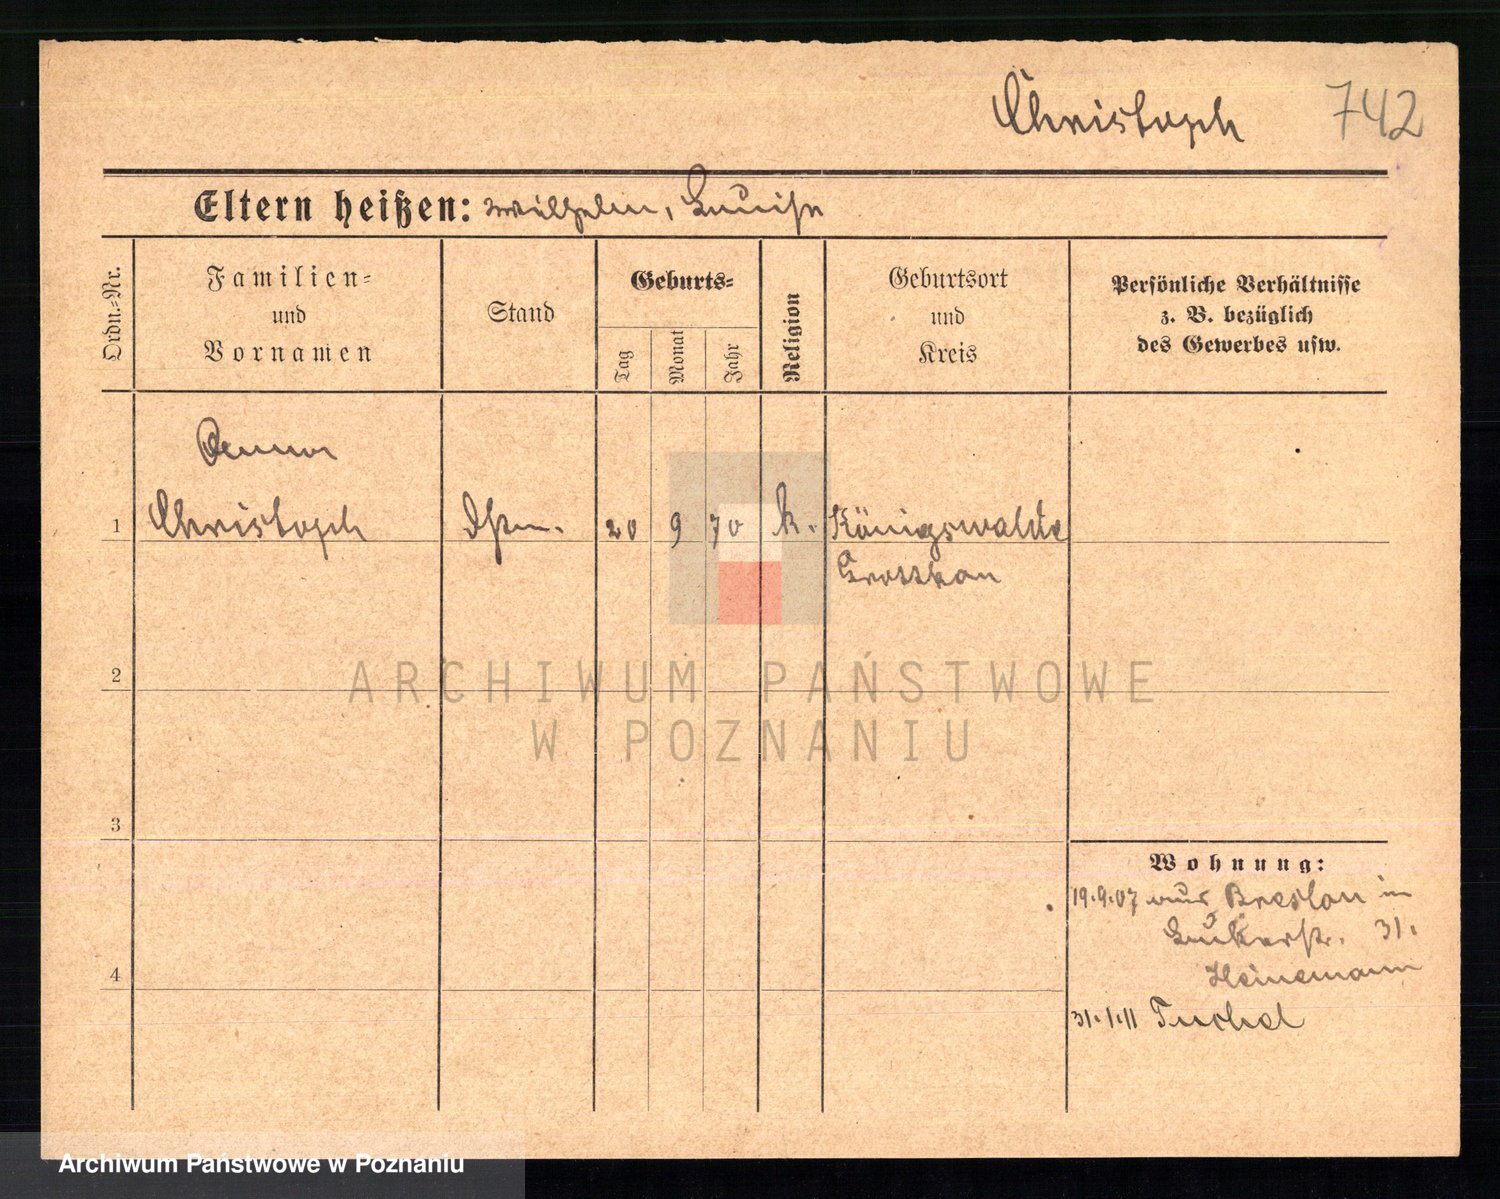 Christoph 742
Eltern heißen: Wilhelm, Luise
Ordn.-Nr.
Familien-
und
Vornamen
Stand
Geburts-
Tag
Monat
Jahr
Religion
Geburtsort
und
Kreis
Persönliche Verhältnisse
z. B. bezüglich
des Gewerbes usw.
Anna
1 Christoph 20 9 70 k. Königswalde
Grottkau
2
ARCHIWUM PAŃSTWOWE
W POZNANIU
3
Wohnung:
19.9.07 aus Breslau in
31.
4 Heinemann
31.1.11 Tuchel
Archiwum Państwowe w Poznaniu